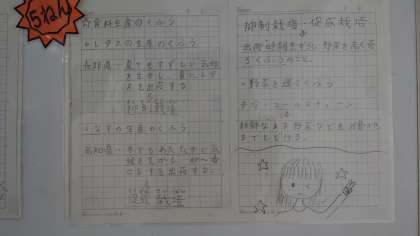 5ねん
☆食料生産のくふう
・レタスの生産のくふう
長野県…夏でもすずしい気候
を生かし、夏にレタ
スを出荷する
抑制栽培
・なすの生産のくふう
高知県…冬でもあたたかい気
候を生かし、
なすを出荷する。
促成 栽培
抑制栽培・促成栽培
出荷時期をずらし、野菜を高く売
るくふうのこと。
・野菜を運ぶくふう
コールドチェーン
新鮮なまま野菜などを
までとどける。